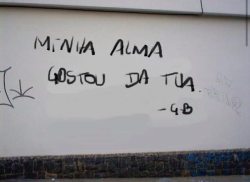 MINHA ALMA
GOSTOU DA TUA.
-GB